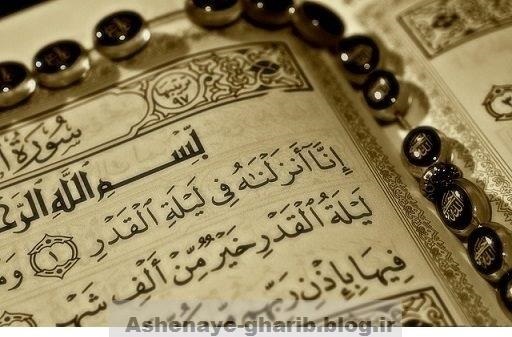 سُورَةُ ا
بِسْمِ اللَّهِ الرَّحْ
إِنَّا أَنزَلْنَٰهُ فِى لَيْلَةِ ٱلْقَدْرِ ١ وَمَ
لَيْلَةُ ٱلْقَدْرِ خَيْرٌ مِّنْ أَلْفِ شَهْ
فِيهَا بِإِذْنِ رَبِّهِم
Ashenaye-gharib.blog.ir